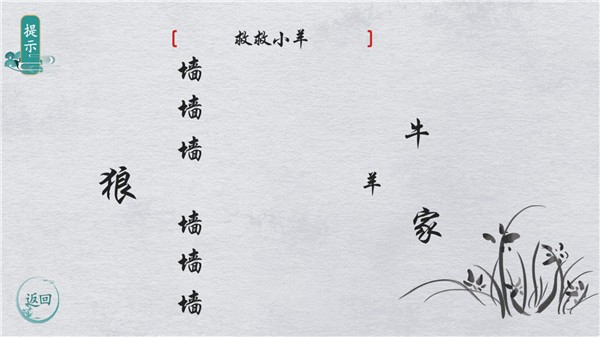 提示
救救小羊
墙
墙
墙
牛
羊
狼
墙
家
墙
墙
返回